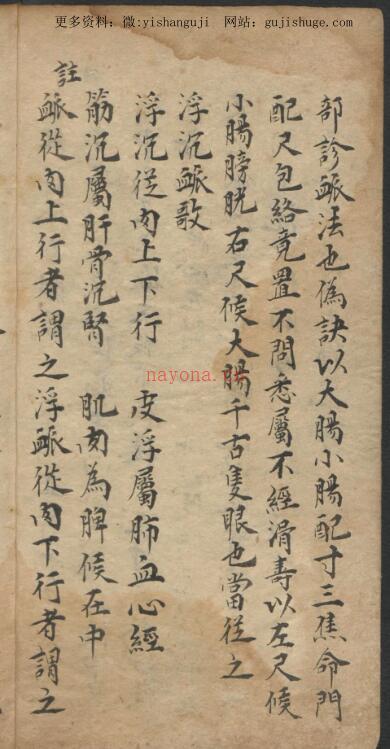 更多资料：微:yishanguji　网站：gujishuge.com
部診脈法也偽訣以大腸小腸配寸三焦命門
配尺包絡竟置不問悉屬不經滑壽以左尺候
小腸膀胱右尺候大腸千古隻眼也當從之
浮沉脈歌
浮沉從肉上下行　皮浮屬肺血心經
筋沉屬肝骨沉腎　肌肉為脾候在中
註
脈從肉上行者謂之浮脈從肉下行者謂之
nayona.